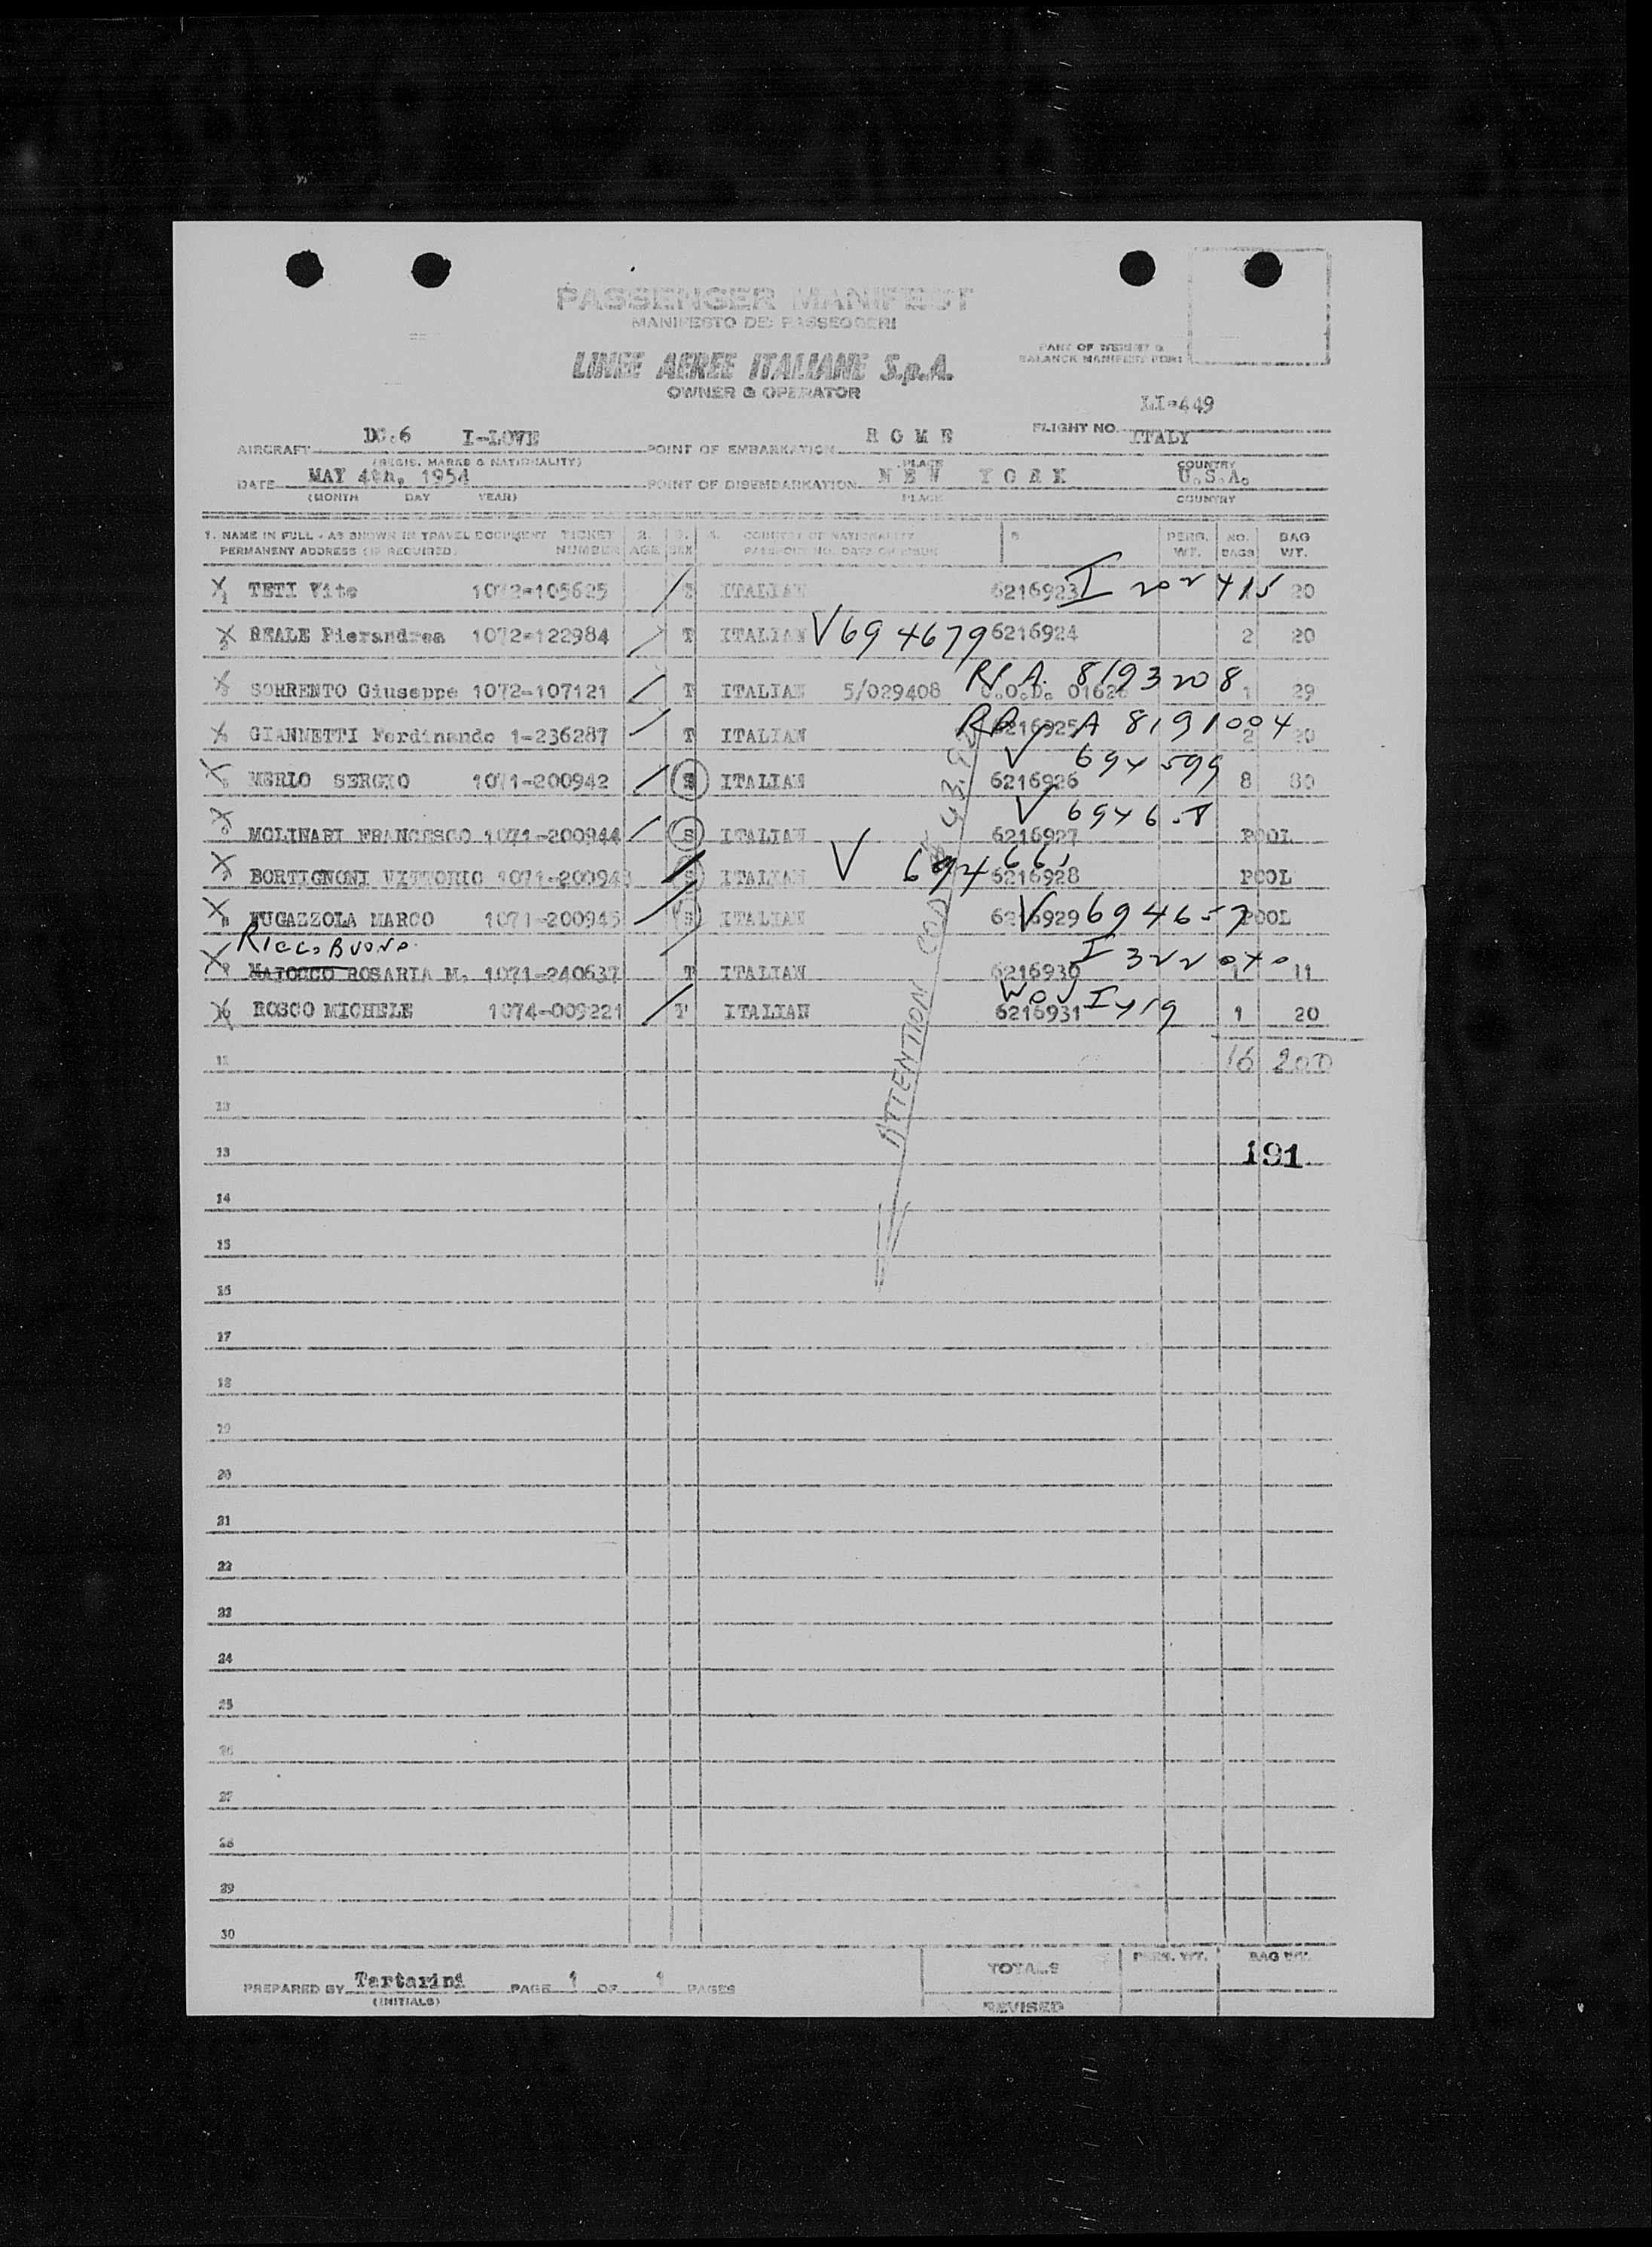 PASSENGER MANIFEST
MANIFESTO DEI PASSEGGERI
PART OF WEIGHT &
BALANCE MANIFEST FORM
LINEE AEREE ITALIANE S.p.A.
OWNER & OPERATOR
FLIGHT NO. LI-449
AIRCRAFT DC.6 I-LOVE POINT OF EMBARKATION R O M E ITALY
(REGIS. MARKS & NATIONALITY) PLACE COUNTRY
DATE MAY 4th, 1954 POINT OF DISEMBARKATION N E W Y O R K U.S.A.
(MONTH DAY YEAR) PLACE COUNTRY
1. NAME IN FULL - AS SHOWN IN TRAVEL DOCUMENT TICKET 2. 3. 4. COUNTRY OF NATIONALITY 5. PERS. NO. BAG
PERMANENT ADDRESS (IF REQUIRED) NUMBER AGE SEX PASSPORT NO. DATE OF ISSUE WT. BAGS WT.
1 TETI Vito 1072-105625 ITALIAN 6216923 I 202415 20
2 REALE Pierandrea 1072-122984 T ITALIAN V694679 6216924 2 20
3 SORRENTO Giuseppe 1072-107121 T ITALIAN 5/029408 C.O.D. A 8193208 1 29
4 GIANNETTI Ferdinando 1-236287 T ITALIAN 6216925 A 8191004 2 20
5 MERLO SERGIO 1071-200942 S ITALIAN 6216926 V 694599 8 80
6 MOLINARI FRANCESCO 1071-200944 S ITALIAN 6216927 POOL
7 BORTIGNONI VITTORIO S ITALIAN V 694661 6216928 POOL
8 FUGAZZOLA MARCO 1071-200945 S ITALIAN 6216929 V 694657 POOL
RICCOBUONO
9 MAIOCCO ROSARIA M. 1071-240637 T ITALIAN 6216930 I 322040 1 11
10 BOSCO MICHELE 1074-009221 T ITALIAN 6216931 1 20
11 16 200
12
13 191
14
15
16
17
18
19
20
21
22
23
24
25
26
27
28
29
30
ATTENTION COD
TOTALS PERS. WT. BAG WT.
PREPARED BY Tartarini PAGE 1 OF 1 PAGES
(INITIALS) REVISED